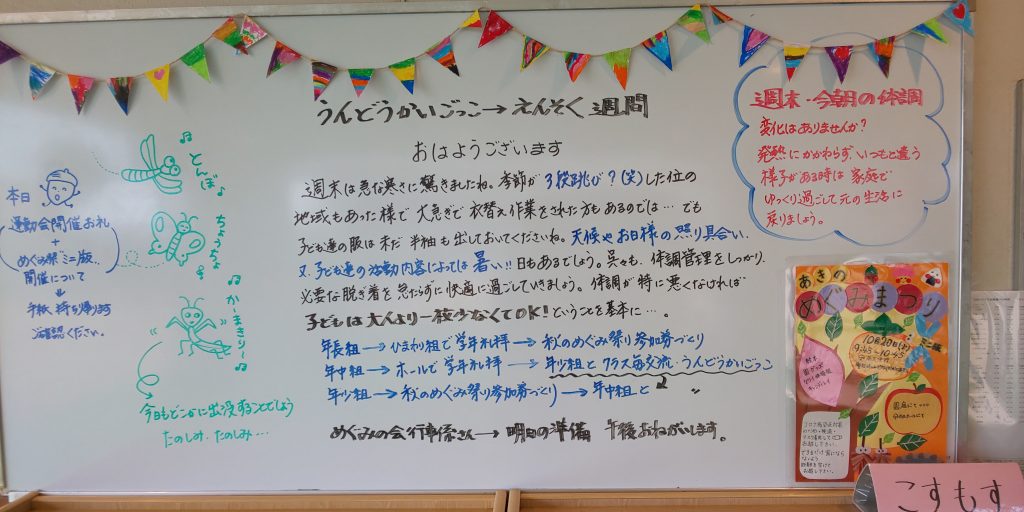 うんどうかいごっこ→えんそく週間
おはようございます
週末は急な寒さに驚きましたね。季節が3段跳び?(笑)した位の
地域もあった様で 大急ぎで 衣替え作業をされた方もあるのでは… でも
子ども達の服は未だ 半袖も出しておいてくださいね。天候やお日様の照り具合い、
又、子ども達の活動内容によっては暑い!!日もあるでしょう。呉々も、体調管理をしっかり、
必要な脱ぎ着を怠たらずに快適に過ごしていきましょう。体調が特に悪くなければ
子どもは大人より一枚少なくてOK! ということを基本に…。
年長組→ひまわり組で学年礼拝→秋のめぐみ祭り参加券づくり
年中組→ホールで学年礼拝→年少組とクラス毎交流・うんどうかいごっこ
年少組→秋のめぐみ祭り参加券づくり→年中組と 〃
めぐみの会行事係さん→明日の準備 午後おねがいします。
本日
運動会開催お礼
+
めぐみ祭"ミニ版"
開催について
手紙 持ち帰ります
ご確認ください。
とんぼ
ちょうちょ
かーまきりー
今日もどこかに出没することでしょう
たのしみ・たのしみ…
週末・今朝の体調
変化はありませんか?
発熱にかかわらず、いつもと違う
様子がある時は 家庭で
ゆっくり過ごして元の生活に
戻りましょう。
あきの
めぐみまつり
ミニ版
10月20日(土)
9:45〜10:45
こすもす